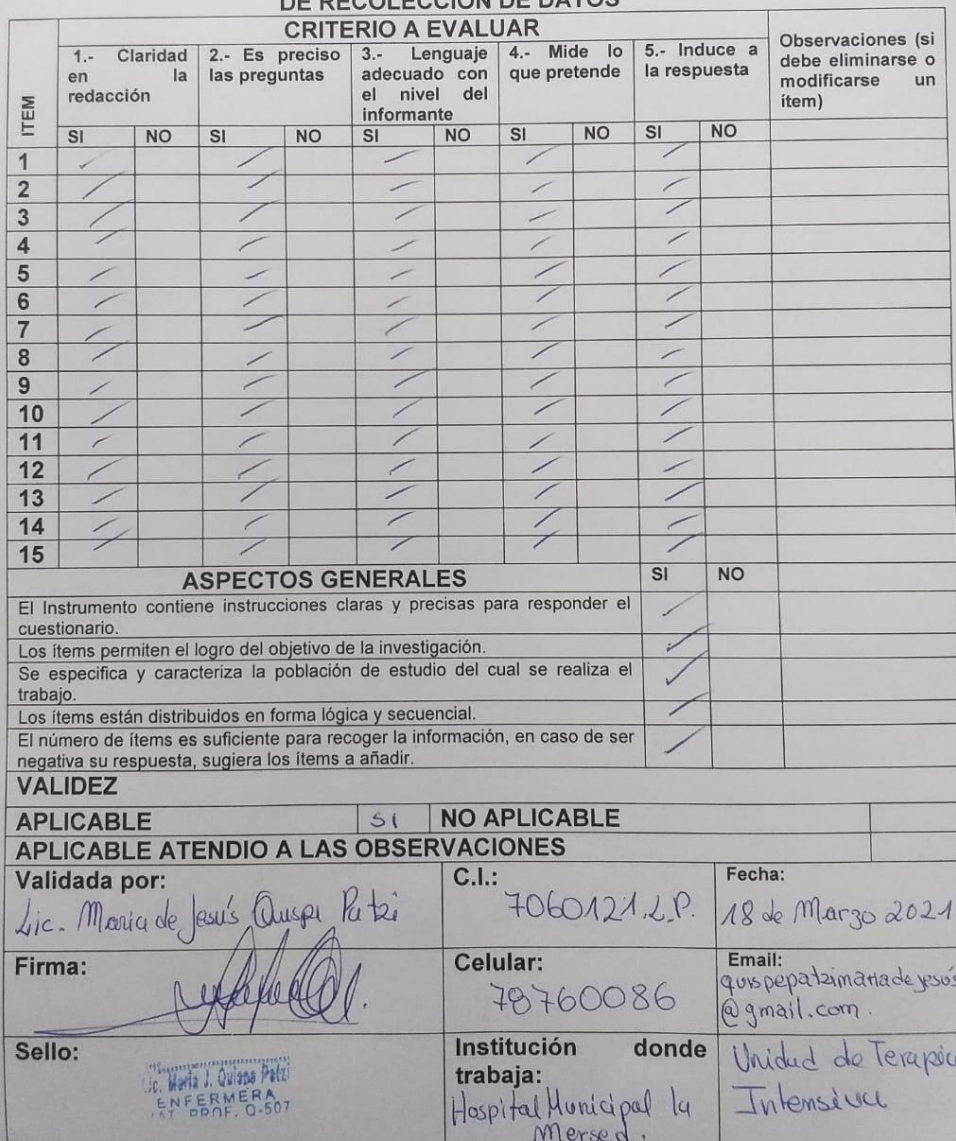 DE RECOLECCIÓN DE DATOS
CRITERIO A EVALUAR
ITEM
1.- Claridad en la redacción
2.- Es preciso las preguntas
3.- Lenguaje adecuado con el nivel del informante
4.- Mide lo que pretende
5.- Induce a la respuesta
Observaciones (si debe eliminarse o modificarse un ítem)
SI NO SI NO SI NO SI NO SI NO
1
2
3
4
5
6
7
8
9
10
11
12
13
14
15
ASPECTOS GENERALES SI NO
El Instrumento contiene instrucciones claras y precisas para responder el
cuestionario.
Los ítems permiten el logro del objetivo de la investigación.
Se especifica y caracteriza la población de estudio del cual se realiza el
trabajo.
Los ítems están distribuidos en forma lógica y secuencial.
El número de ítems es suficiente para recoger la información, en caso de ser
negativa su respuesta, sugiera los ítems a añadir.
VALIDEZ
APLICABLE SI NO APLICABLE
APLICABLE ATENDIO A LAS OBSERVACIONES
Validada por:
Lic. Maria de Jesús Quispe Patzi
C.I.:
7060121.L.P.
Fecha:
18 de Marzo 2021
Firma:
Celular:
78760086
Email:
quispepatzimariadejesús
@gmail.com.
Sello:
Lic. Maria J. Quispe Patzi
ENFERMERA
MAT. PROF. Q-507
Institución donde
trabaja:
Hospital Municipal la
Mersed.
Unidad de Terapia
Intensiva